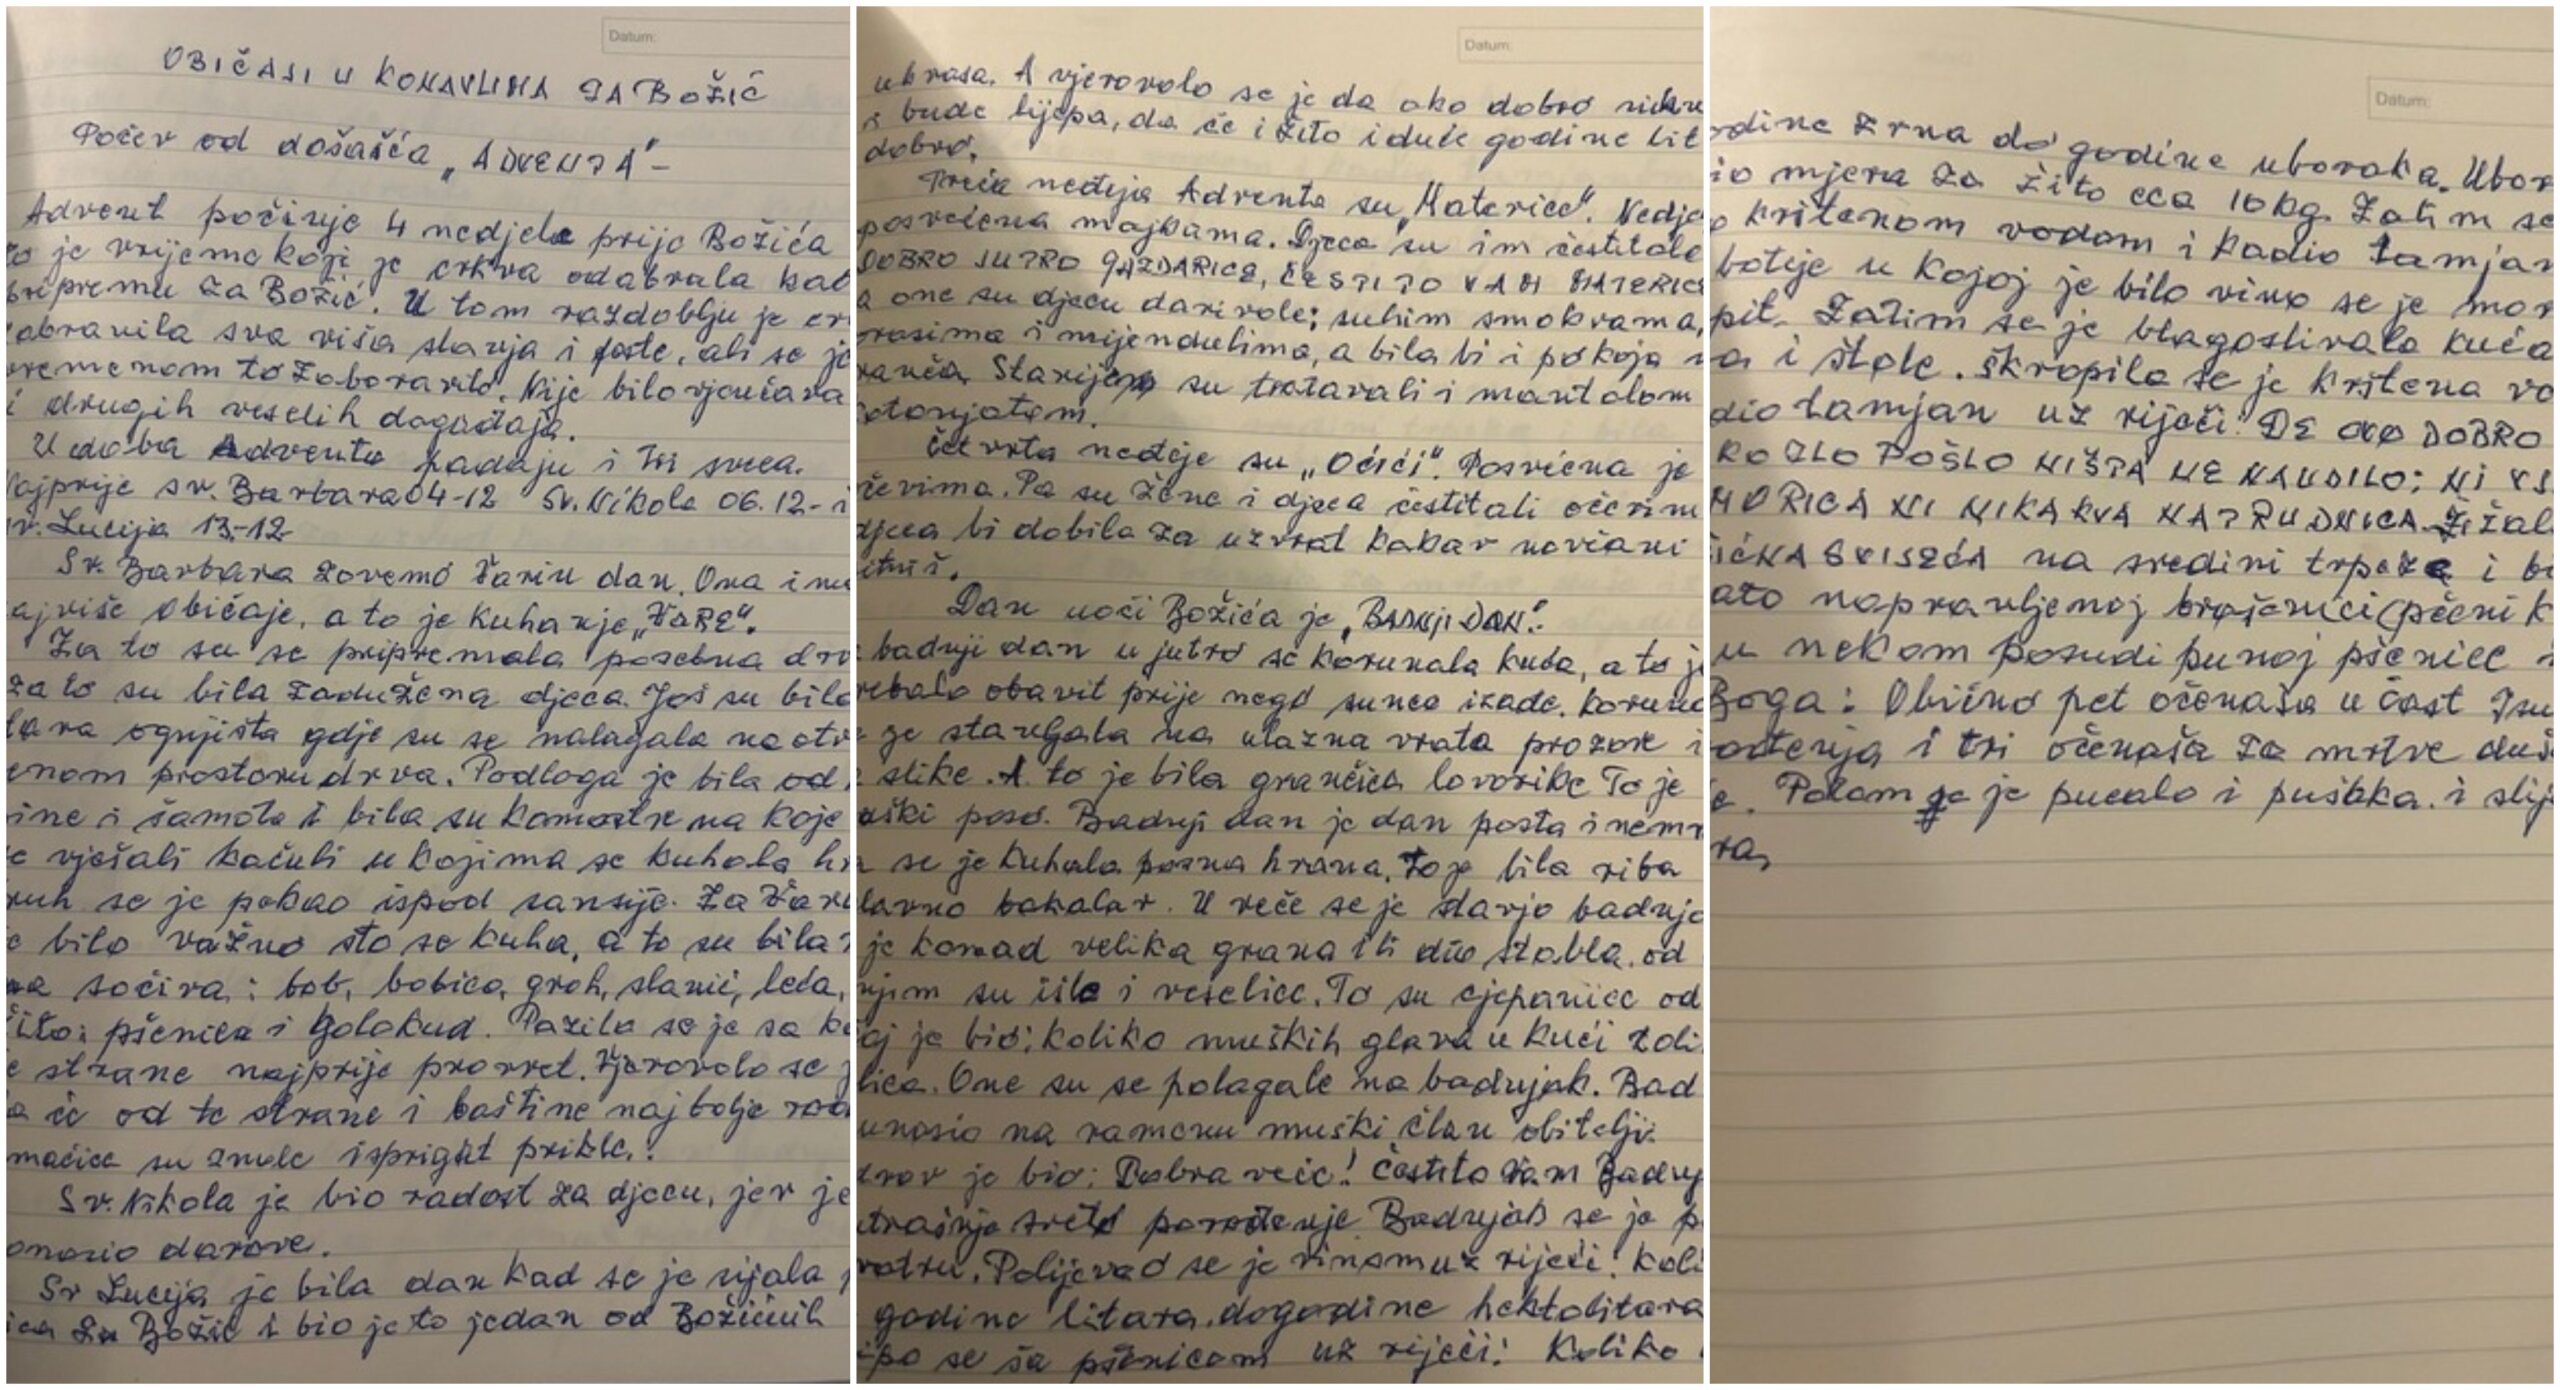 Datum:
OBIČAJI U KONAVLIMA ZA BOŽIĆ
Počev od došašća „ADVENTA"-
Advent počinje 4 nedjele prije Božića
to je vrijeme koji je crkva odabrala kao
pripremu za Božić. U tom razdoblju je cr
abranila sva viša slavja i feste, ali se je
vremenom to zaboravilo. Nije bilo vjenčava
i drugih veselih događaja.
U doba Adventa padaju i tri sveca.
Najprije sv. Barbara 04-12 Sv. Nikola 06.12- i
sv. Lucija 13-12-
Sv. Barbara zovemo Varin dan. Ona ima
ajviše običaje, a to je kuhanje „VARE".
Za to su se pripremala posebna drv
za to su bila zadužena djeca. Još su bila
tara ognjišta gdje su se nalagala na otv
enom prostoru drva. Podloga je bila od
ine i šamota i bila su komostre na koje
e vješali kačuli u kojima se kuhala hr
ruh se je pekao ispod sansije. Za Varu
e bilo važno što se kuha, a to su bila
na sočiva: bob, bobica, groh, slanić, leća,
žito: pšenica i golokud. Pazilo se je sa ko
e strane najprije provret. Vjerovalo se j
a će od te strane i baštine najbolje rod
maćice su znale isprigat prikle.
Sv. Nikola je bio radost za djecu, jer je
onosio darove.
Sv Lucija je bila dan kad se je sijala
ica za Božić i bio je to jedan od Božićnih
Datum:
ukrasa. A vjerovalo se je da ako dobro nikne
i bude lijepa, da će i žito iduće godine bit
dobro.
Treća nedjeja Adventa su „Materice". Nedje
posvećena majkama. Djeca su im čestitale
DOBRO JUTRO GAZDARICE, ČESTITO VAM MATERICE
a one su djecu darivale; suhim smokvama,
orasima i mijendulima, a bila bi i pokoja n
ranča. Starije su tratavali i mantalom
kotonjatom.
Četvrta nedjeje su „Očići". Posvećena je
očevima. Pa su žene i djeca čestitali očevim
djeca bi dobila za uzvrat kakav novčani
itniš.
Dan uoči Božića je „BADNJI DAN".
badnji dan u jutro se korunala kuća, a to je
rebalo obavit prije nego sunce izađe. Koruna
se stavljala na ulazna vrata prozore i
slike. A to je bila grančica lovorike To je
uški poso. Badnji dan je dan posta i nemr
a se je kuhala posna hrana. to je bila riba
lavno bakalar. U veče se je stavjo badnja
je komad velika grana ili dio stabla. od
njim su išle i veselice. To su cjepanice od
oj je bio: koliko muških glava u kući toli
lica. One su se polagale na badnjak. Bad
unosio na ramenu muški član obitelji.
drav je bio: Dobra veče! Čestito vam Badnj
utrašnje sveto porođenje Badnjak se je p
vatru. Polijevao se je vinom uz riječi: Koli
godine litara. dogodine hektolitara
ipo se sa pšenicom uz riječi: Koliko
Datum:
odine zrna do godine uboraka. Ubor
io mjera za žito cca 10 kg. Zatim se
o krštenom vodom i kadio tamjan
botije u kojoj je bilo vino se je mor
pit. Zatim se je blagoslivala kuća
va i štale. škropila se je krštena vo
dio tamjan uz riječi: DE OVO DOBRO
KO ZLO POŠLO NIŠTA NE NAUDILO: NI VJ
MORICA NI NIKAKVA NATRUDNICA. Žižal
IĆNA SVISEĆA na sredini trpeze i bi
ato napravljenoj brašenici (pčeni k
u nekom posudi punoj pšenice i
Boga: Obično pet očenaša u čast Isu
ođenja i tri očenaša za mrtve duš
e. Potom se je pucalo i puškka. i slij
ra,